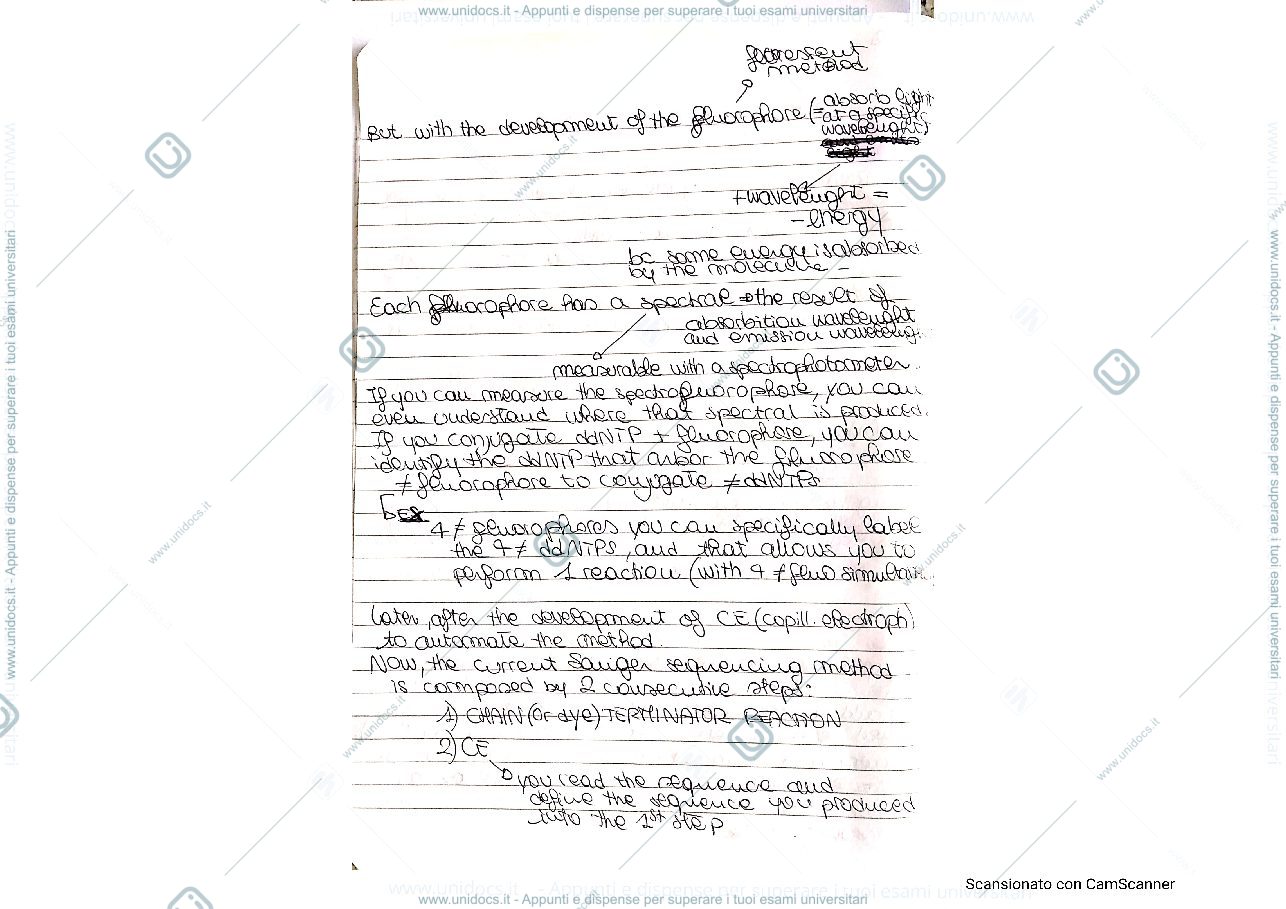 www.unidocs.it - Appunti e dispense per superare i tuoi esami universitari
fluorescent
method
But with the development of the fluorophore (= absorb light
at a specific
wavelenght)
+wavelenght =
- energy
bc some energy is absorbed
by the molecule -
Each fluorophore has a spectral → the result of
absorbition wavelenght
and emission waveleng.
measurable with a spectrophotometer.
If you can measure the spectrofluorophore, you can
even understand where that spectral is produced.
If you conjugate ddNTP + fluorophore, you can
identify the ddNTP that arbor the fluorophore
≠ fluorophore to conjugate ≠ ddNTPs
4 ≠ fluorophores you can specifically label
the 4 ≠ ddNTPs, and that allows you to
perform 1 reaction (with 4 ≠ fluo simultan.
Later, after the development of CE (capill. electroph)
to automate the method.
Now, the current Sanger sequencing method
is composed by 2 consecutive steps:
1) CHAIN (or dye) TERMINATOR REACTION
2) CE
you read the sequence and
define the sequence you produced
into the 1st step
Scansionato con CamScanner
www.unidocs.it - Appunti e dispense per superare i tuoi esami universitari